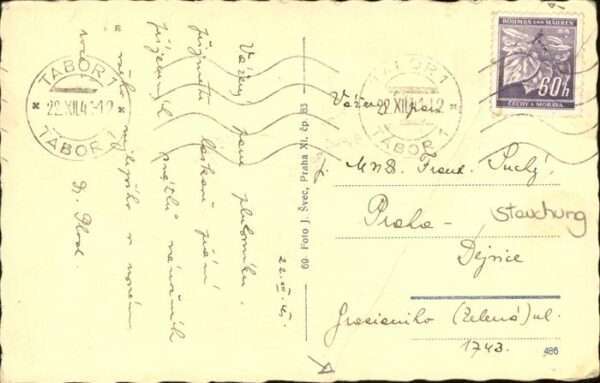 BÖHMEN UND MÄHREN
60h
ČECHY A MORAVA
TÁBOR 1
22.XII.4
TÁBOR 1
TÁBOR 1
22.XII.41-12
TÁBOR 1
Vážený pane plukovníku.
přijměte laskavě přání
příjemných svátků vánočních
a všeho nejlepšího v novém
roce.
22.XII.41.
69. Foto J. Švec, Praha XI. čp. 83
Vážený pan
MUDr. Frant. Suchý.
Praha -
Stauchung
Dejvice
Gracianiho (Zelená) ul.
1743.
486